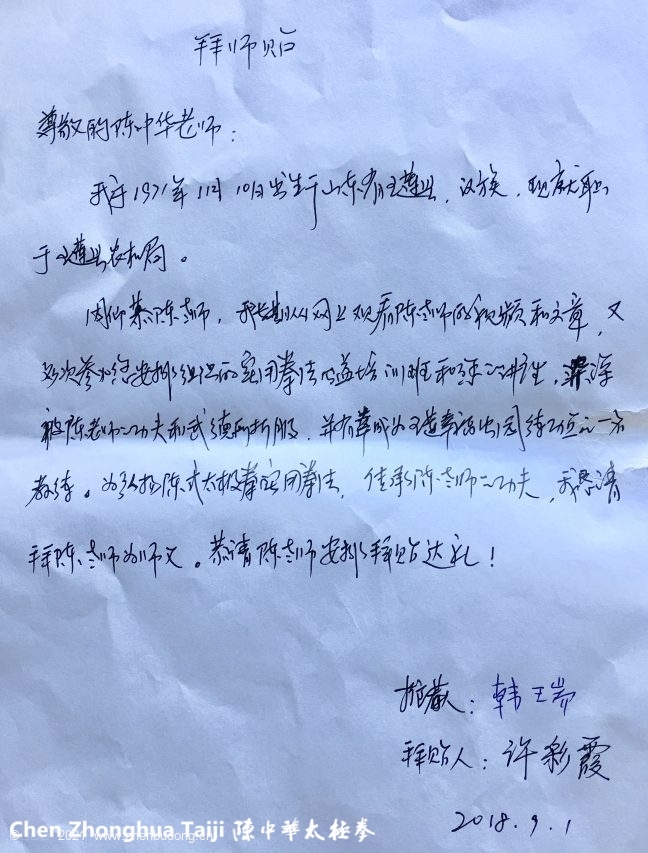 拜师贴
尊敬的陈中华老师：
我于1971年11月10日出生于山东省五莲县，汉族，现就职
于五莲县农机局。
因仰慕陈老师，我长期从网上观看陈老师的视频和文章，又
多次参加 安排组织的实用拳法公益培训班和 讲座，深深
被陈老师的功夫和武德所折服，并有幸成为五莲 公园练功点的一名
教练。为弘扬陈式太极拳实用拳法，传承陈老师的功夫，我恳请
拜陈老师为师父。恭请陈老师安排拜贴达礼！
推荐人：韩瑞
拜贴人：许彩霞
2018.9.1
Chen Zhonghua Taiji 陳中華太極拳